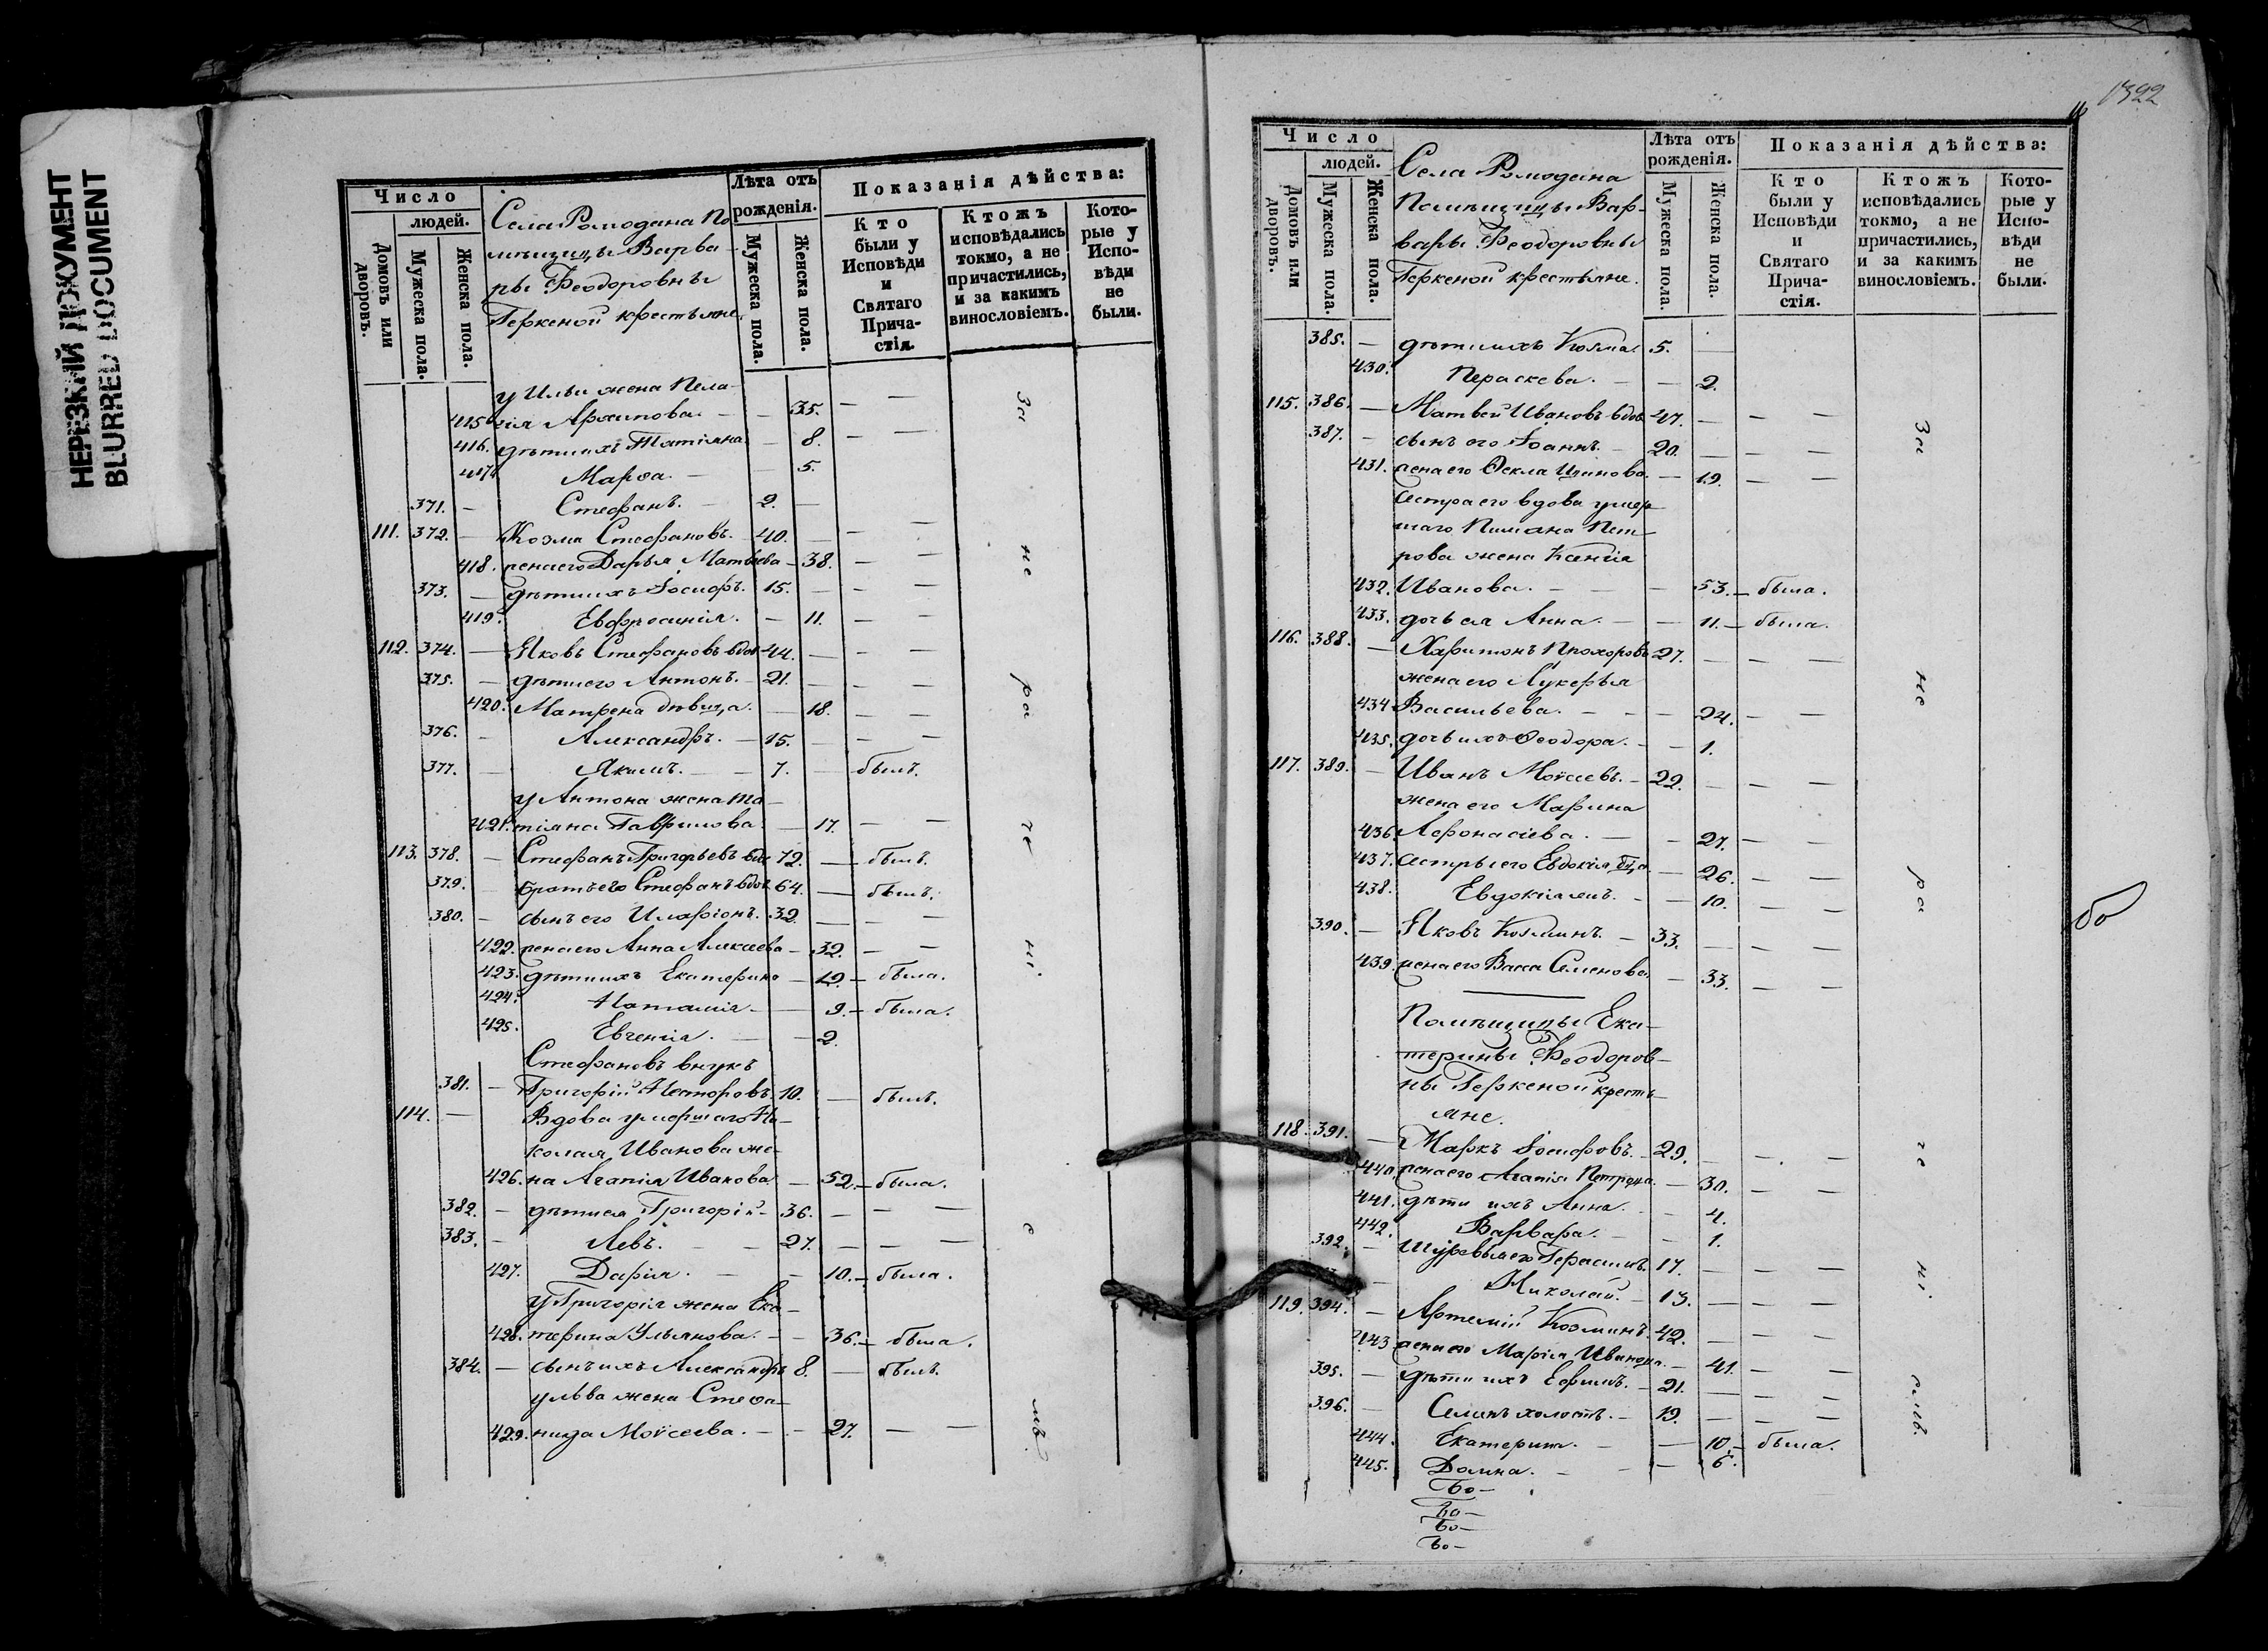 НЕРЕЗКИЙ ДОКУМЕНТ
BLURRED DOCUMENT
Число
людей.
Домовъ или дворовъ.
Мужеска пола.
Женска пола.
Села Ромодана По
мѣщицы Варва-
ры Ѳеодоровны
Геркеной крестьяне.
Лѣта отъ рожденія.
Мужеска пола.
Женска пола.
Показанія дѣйства:
Кто были у Исповѣди и Святаго Прича-стія.
Ктожъ исповѣдались токмо, а не причастились, и за какимъ винословіемъ.
Кото-рые у Испо-вѣди не были.
у Ильи жена Пела-
415. гія Архипова. — — 35. — —
416. дѣти ихъ Татіяна. — 8. — —
417. Марѳа. — — 5.
371. — Стефанъ. — 2. —
111. 372. — Козма Стефановъ. — 40. — — —
418. жена его Дарья Матвѣева — 38. — —
373. — дѣти ихъ Іосифъ. 15. — — —
419. Евфросинія. — 11. — —
112. 374. — Яковъ Стефановъ вдов 44. — — —
375. — дѣти его Антонъ. — 21. — — —
420. Матрена дѣвица. — 18. — —
376. — Александръ. — 15. — — —
377. — Якимъ. — — 7. — былъ.
у Антона жена Та-
421. тіяна Гаврилова. — 17. — —
113. 378. — Стефанъ Григорьевъ вдов 72. — былъ.
379. — братъ его Стефанъ вдов. 64. — былъ.
380. — сынъ его Иларіонъ. 32. — — —
422. жена его Анна Алексѣева — 32. — —
423. дѣти ихъ Екатерина — 12. — была.
424. Наталія. — — 9. — была.
425. Евгенія. — — 2.
Стефановъ внукъ
381. — Григорій Несторовъ. 10. — былъ.
114. — Вдова умершаго Ни-
колая Иванова же-
426. на Агапія Иванова — 52. — была.
382. — дѣти ея Григорій — 36. — — —
383. — Левъ. — — 27. — — —
427. Дарія. — — 10. — была.
у Григорія жена Ека-
428. терина Ульянова. — — 36. — была.
384. — сынъ ихъ Александръ 8. — былъ.
у Льва жена Стефа-
429. нида Моѵсеева. — — 27. — —
За не ра че ні е мъ.
1322
Число
людей.
Домовъ или дворовъ.
Мужеска пола.
Женска пола.
Села Ромодана
Помѣщицы Вар-
вары Ѳеодоровны
Геркеной крестьяне.
Лѣта отъ рожденія.
Мужеска пола.
Женска пола.
Показанія дѣйства:
Кто были у Исповѣди и Святаго Прича-стія.
Ктожъ исповѣдались токмо, а не причастились, и за какимъ винословіемъ.
Кото-рые у Испо-вѣди не были.
385. — дѣти ихъ Козма. 5. —
430. Параскева. — — 2.
115. 386. — Матвей Ивановъ вдов. 47. — — —
387. — сынъ его Іоаннъ. — 20. — — —
431. жена его Ѳекла — 19. — —
сестра его вдова умер-
шаго Пимена Пет-
рова жена Ксенія
432. Иванова. — — — 53. — была.
433. дочь ея Анна. — — 11. — была.
116. 388. — Харитонъ Прохоровъ 27. — — —
жена его Лукерья
434. Васильева. — — — 24. — —
435. дочь ихъ Ѳеодора. — — 1.
117. 389. — Иванъ Моѵсеевъ. — 22. — — —
жена его Марина
436. Афонасіева. — — 27. —
437. сестры его Евдокія — 26. — —
438. Евдокія — — 10. — —
390. — Яковъ Козминъ. — 33. — — —
439. жена его Васса Семенова — 33. — —
Помѣщицы Ека-
терины Ѳеодоров-
ны Геркеной кресть-
яне.
118. 391. — Маркъ Іосифовъ. — 29. — — —
440. жена его Агапія Петрова. — 30. — —
441. дѣти ихъ Анна. — — 4.
442. Варвара. — — 1.
392. — Шурья его Герасимъ. 17. — — —
— Николай. — 13. — — —
119. 394. — Артемій Козминъ. 42. — — —
443. жена его Марія Иванова. — 41. — —
395. — дѣти ихъ Ефимъ. — 21. — — —
396. — Семенъ холостъ. — 19. — — —
444. Екатерина. — — 10. — была.
445. Домна. — — — 6.
За не ра че ні емъ.